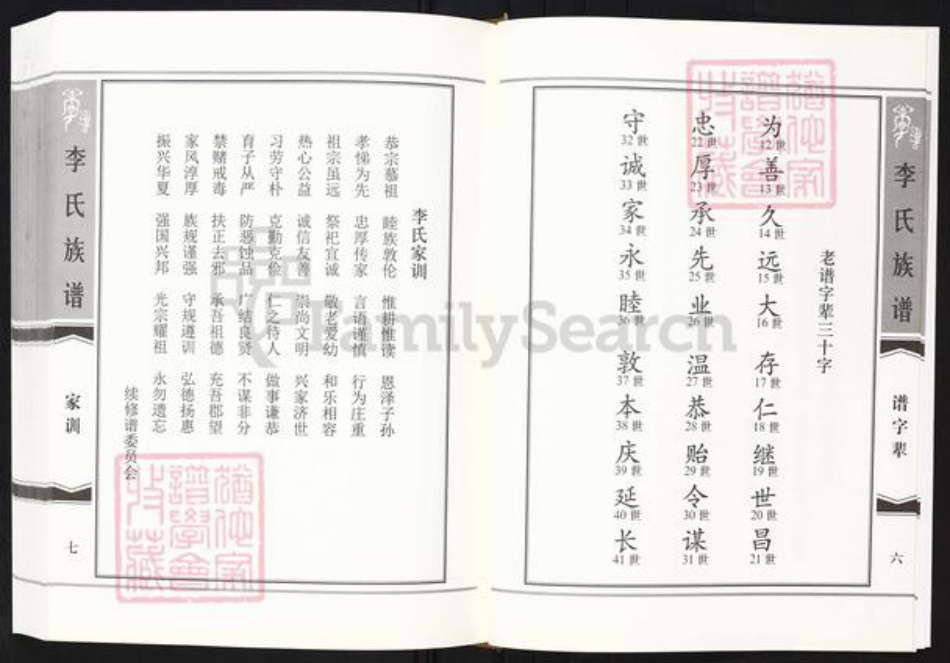 李氏族谱
谱字辈
六
老谱字辈三十字
为 善 久 远 大 存 仁 继 世 昌
12世 13世 14世 15世 16世 17世 18世 19世 20世 21世
忠 厚 承 先 业 温 恭 贻 令 谋
22世 23世 24世 25世 26世 27世 28世 29世 30世 31世
守 诚 家 永 睦 敦 本 庆 延 长
32世 33世 34世 35世 36世 37世 38世 39世 40世 41世
李氏家训
恭宗慕祖 睦族敦伦 惟耕惟读 恩泽子孙
孝悌为先 忠厚传家 言语谨慎 行为庄重
祖宗虽远 祭祀宜诚 敬老爱幼 和乐相容
热心公益 诚信友善 崇尚文明 兴家济世
习劳守朴 克勤克俭 仁之待人 做事谦恭
育子从严 防恶蚀品 广结良贤 不谋非分
禁赌戒毒 扶正去邪 承吾祖德 充吾郡望
家风淳厚 族规谨强 守规遵训 弘德扬惠
振兴华夏 强国兴邦 光宗耀祖 永勿遗忘
续修谱委员会
李氏族谱
家训
七
FamilySearch